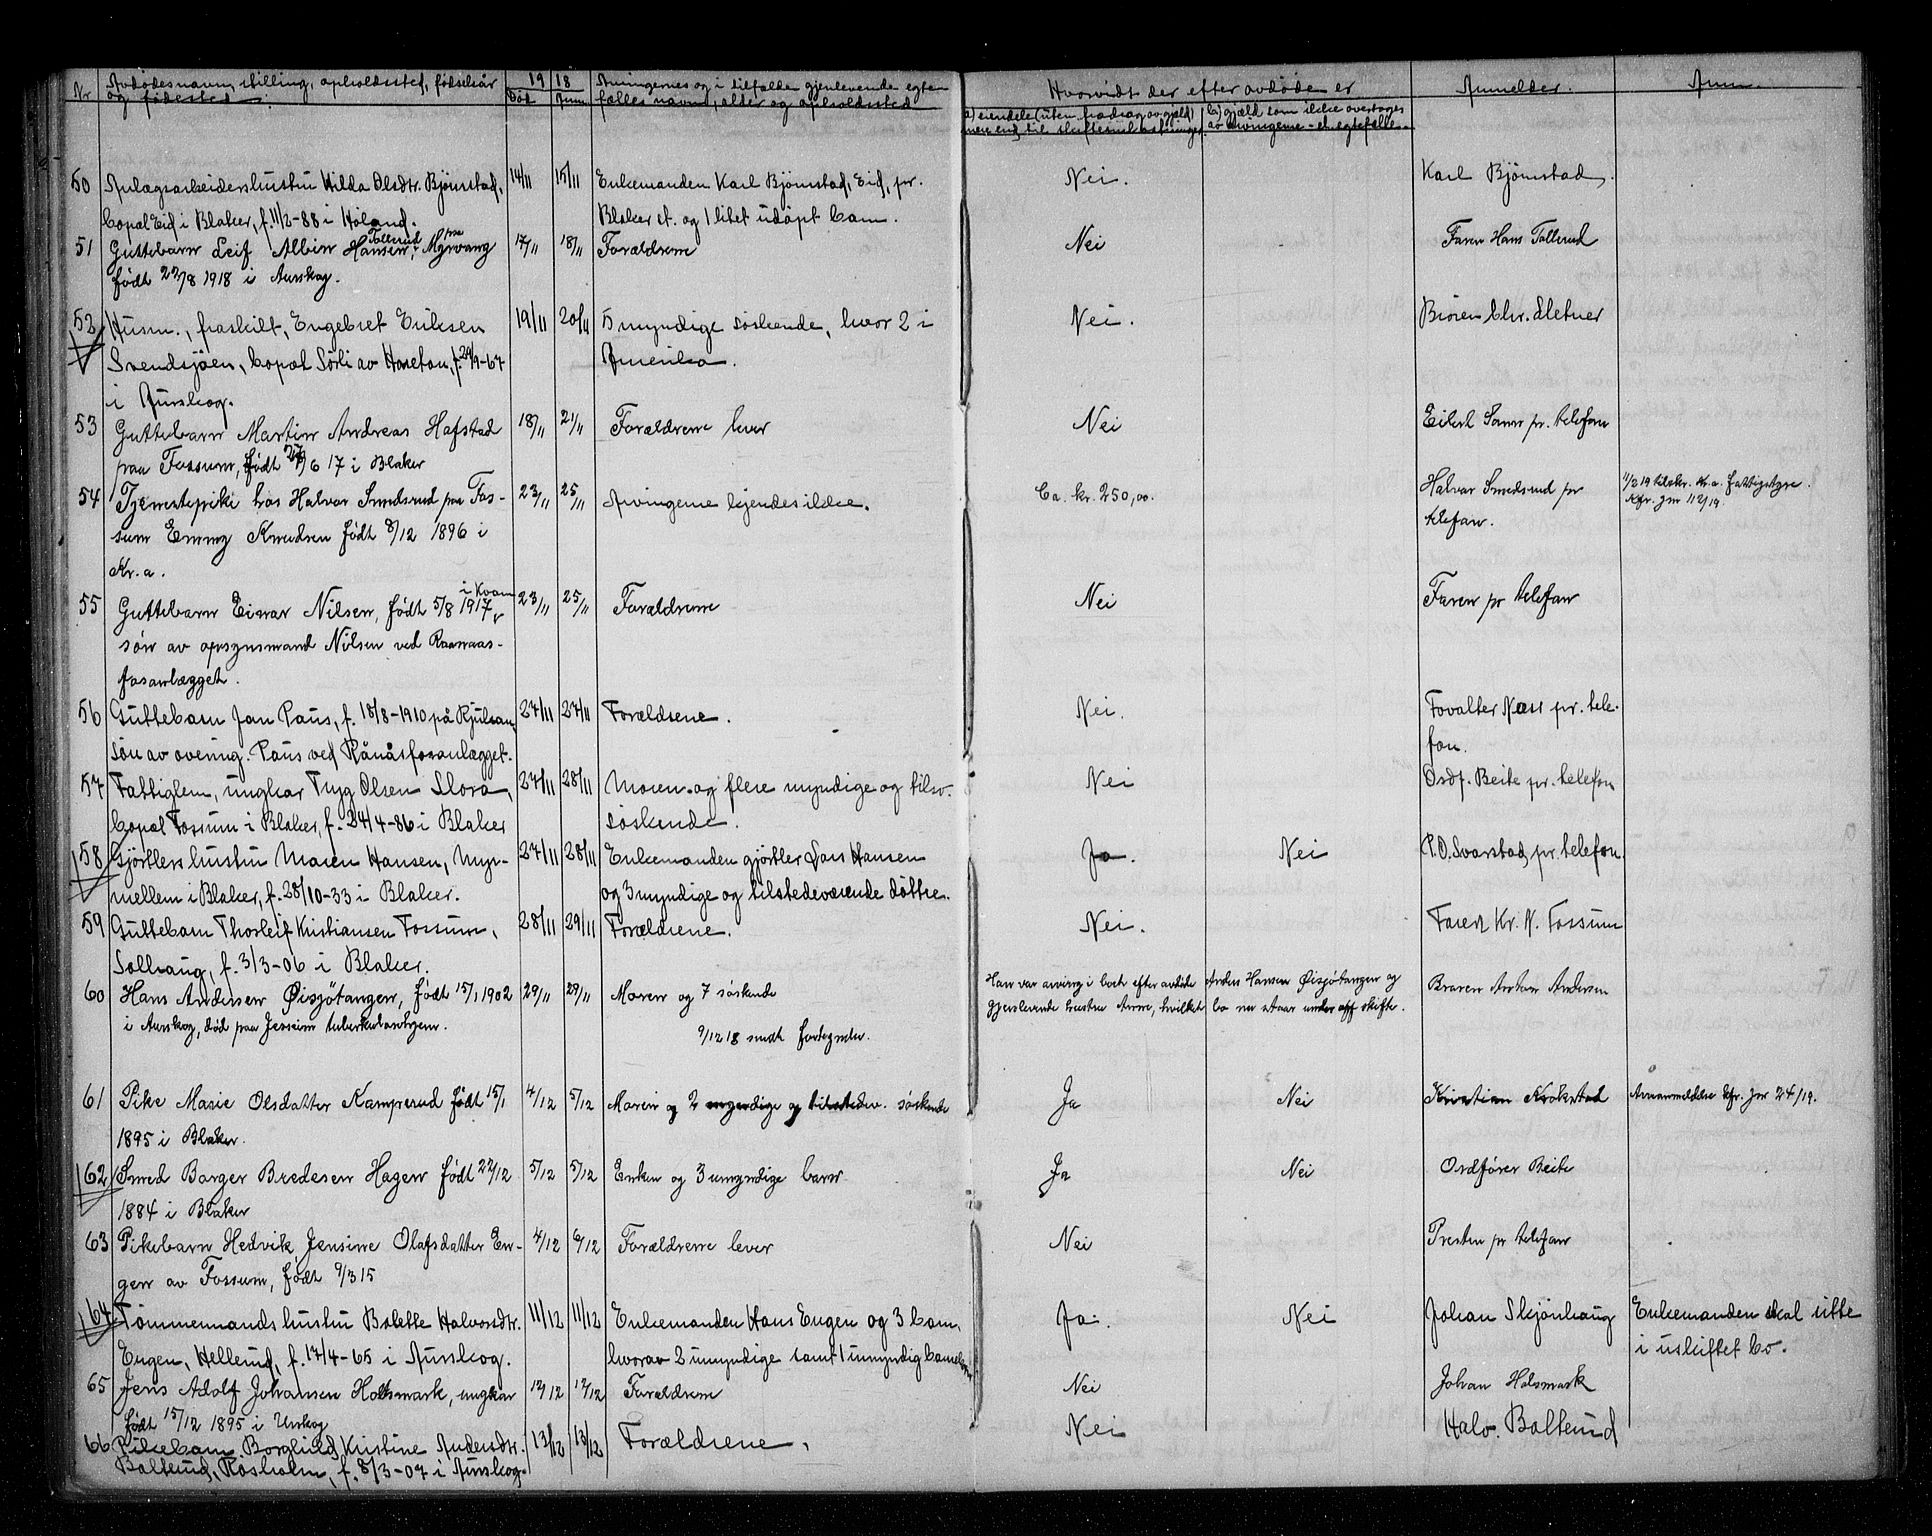 Nr
Avdødes navn, stilling, opholdssted, fødselsår
og fødested.
19 18
Død
Anm.
Arvingernes og i tilfælde gjenlevende egte-
fælles navn, alder og opholdssted
Hvorvidt der efter avdøde er
a) eiendele (uten fradrag av gjæld)
mere end til skifteomkostninger
b) gjæld som ikke overtages
av arvingerne - el. egtefælle.
Anmelder.
Anm.
50 Anlægsarbeiderhustru Hilda Olsdtr. Bjørnstad, 14/11 15/11 Enkemanden Karl Bjørnstad, Eid, pr. Nei. Karl Bjørnstad.
bopæl Eid i Blaker, f. 11/2-88 i Høland. Blaker st. og 1 litet udøpt barn.
51 Guttebarn Leif Albin Hansen Tollerud, Myrvang 17/11 18/11 Forældrerne Nei Faren Hans Tollerud
født 22/8 1918 i Aurskog.
52 Husm., fraskilt, Engebret Eriksen 19/11 20/11 5 myndige søskende, hvor 2 i Nei. Broren Chr. Sletner
Svendsjøen, bopæl Sørli av Haneton, f. 29/9-67 Amerika.
i Aurskog.
53 Guttebarn Martin Andreas Hafstad 18/11 21/11 Forældrerne lever Nei Eilert Sann pr. telefon
paa Fossum, født 27/6 17 i Blaker
54 Tjenestepike hos Halvor Smedsrud paa Fos- 23/11 25/11 Arvingerne kjendes ikke. Ca. kr. 250,00. Halvor Smedsrud pr 1/2 19 tilskr. Kr.a. fattigstyre.
sum Emmy Knudsen født 8/12 1896 i telefon. Kfr. jnr 112/19.
Kr.a.
55 Guttebarn Einar Nilsen, født 5/8 1917 i Kvam 23/11 25/11 Forældrerne Nei Faren pr telefon
søn av opsynsmand Nilsen ved Raanaas-
fosanlægget.
56 Guttebarn Jan Paus, f. 18/8-1910 på Rjukan, 27/11 27/11 Forældrene. Nei. Forvalter Næss pr. tele-
søn av overing. Paus ved Rånåsfosanlægget. fon.
57 Fattiglem, ungkar Tryg Olsen Slora, 27/11 28/11 Moren og flere myndige og tilsv. Nei Ordf. Beite pr. telefon
bopæl Fossum i Blaker, f. 24/4-86 i Blaker søskende.
58 Gjørtlers hustru Maren Hansen, Myr- 27/11 28/11 Enkemanden gjørtler Lars Hansen Ja. Nei P.O. Svarstad, pr. telefon.
mellem i Blaker, f. 28/10-33 i Blaker. og 3 myndige og tilstedeværende døttre.
59 Guttebarn Thorleif Kristiansen Fossum, 28/11 29/11 Forældrene. Nei. Faren Kr. N. Fossum
Solhaug, f. 3/3-06 i Blaker.
60 Hans Andersen Øisjøtangen, født 15/1 1902 29/11 29/11 Moren og 7 søskende Han var arving i boet efter avdøde Anders Hansen Øisjøtangen og Broren Anton Andersen
i Aurskog, død paa Jessheim tuberkulosehjem. gjenlevende hustru Anne, hvilket bo nu staar under off skifte.
9/12 18 sendt fortegnelse.
61 Pike Marie Olsdatter Kamperud født 15/1 4/12 5/12 Moren og 2 myndige og tilstedev. søskende Ja Nei Kristian Krokstad Arveanmeldelse kfr. jnr 24/19.
1895 i Blaker.
62 Smed Borger Bredesen Hagen født 22/12 5/12 5/12 Enken og 3 umyndige barn Ja Nei Ordfører Beite
1884 i Blaker
63 Pikebarn Hedvik Jensine Olafsdatter En- 4/12 6/12 Forældrerne lever Nei Presten pr telefon
gen av Fossum, født 9/3 15
64 Tømmermands hustru Bolette Halvorsdtr. 11/12 11/12 Enkemanden Hans Engen og 3 barn, Ja. Nei Johan Skjønhaug Enkemanden skal sitte
Engen, Hellerud, f. 17/4-65 i Aurskog. hvorav 2 umyndige samt 1 umyndig barnebarn i uskiftet bo.
65 Jens Adolf Johansen Holsmark, ungkar 12/12 12/12 Forældrerne Nei Johan Holsmark
født 15/12 1895 i Urskog
66 Pikebarn Borghild Kristine Andersdtr. 13/12 13/12 Forældrene. Nei Halv. Bolterud
Bolterud, Røsholm, f. 8/3-07 i Aurskog.